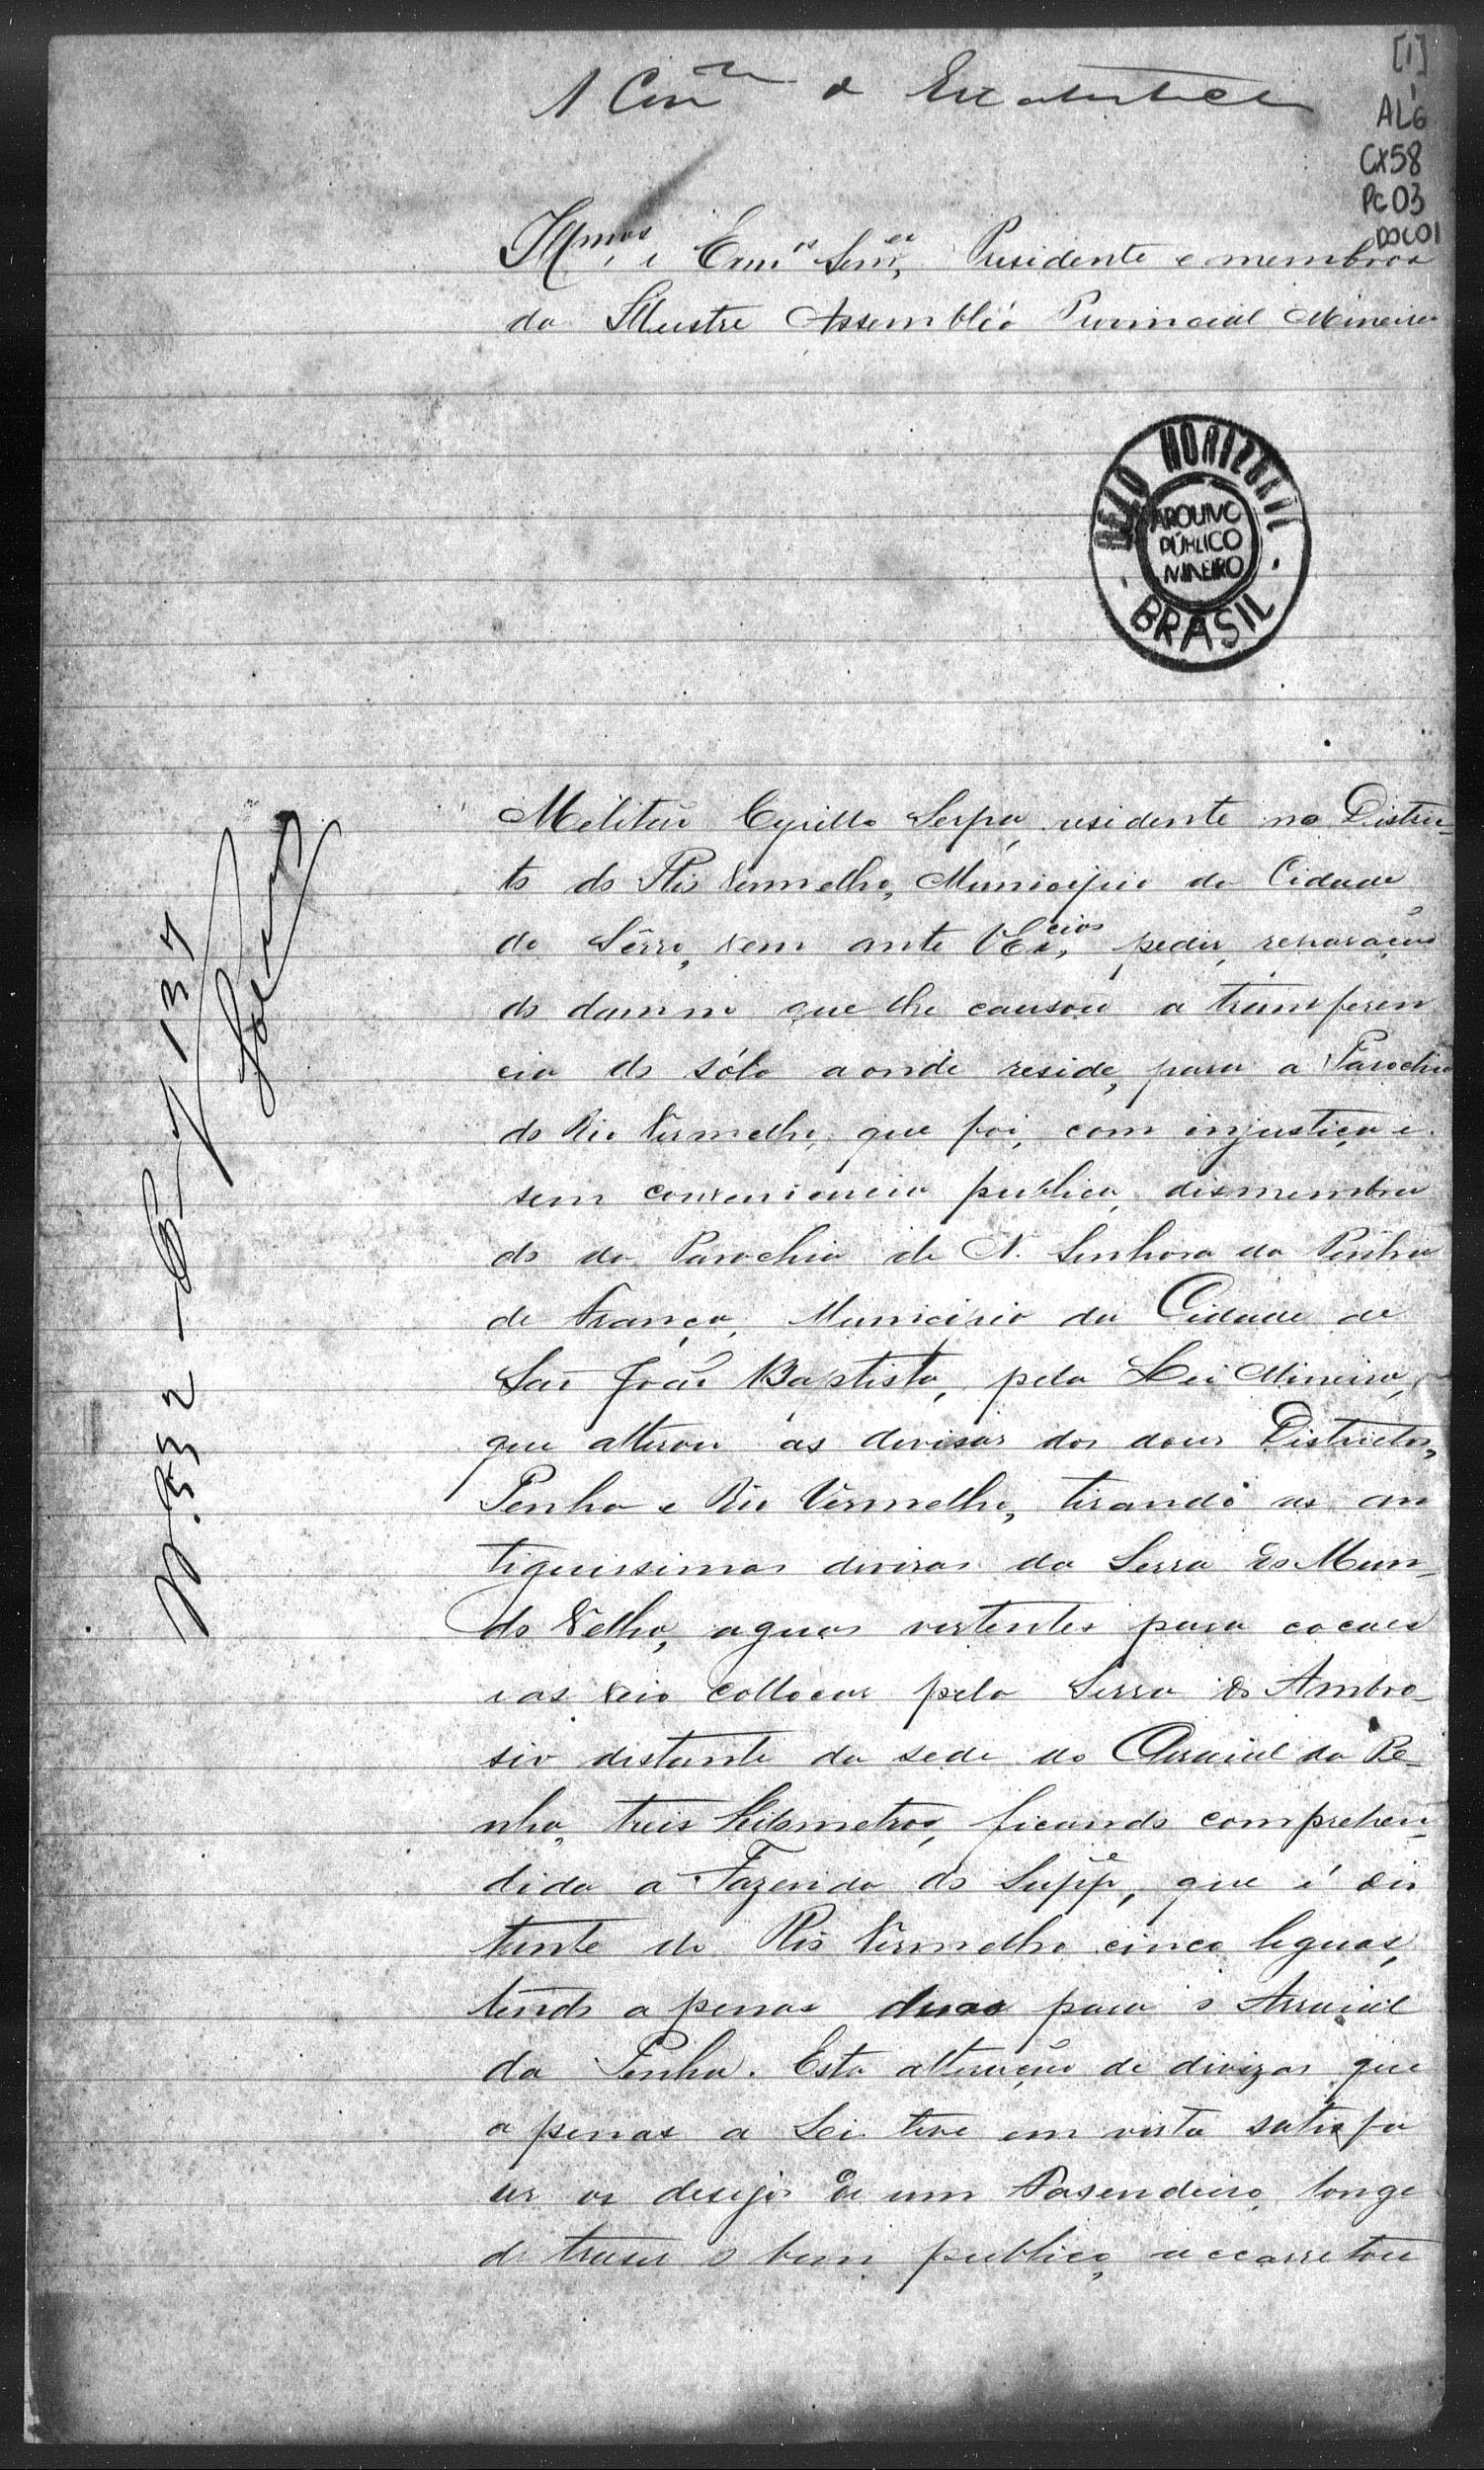 [1]
AL6
CX58
PC03
DOC01
A Com de Estatistica
Illmos e Exmos Senres, Presidente e membros
da Illustre Assembléa Provincial Mineira
BELO HORIZONTE
ARQUIVO
PÚBLICO
MINEIRO
BRASIL
Militão Cyrillo Serpa, residente no Distric-
to do Rio Vermelho, Municipio da Cidade
do Sêrro, vem ante VExcias, pedir, reparação
do damno que lhe causou a transferen
cia do sólo aonde reside, para a Parochia
do Rio Vermelho, que foi, com injustiça e
sem conveniencia publica, dismembra
do da Parochia de N. Senhora da Penha
de França, Municipio da Cidade de
São João Baptista, pela Lei Mineira,
que alterou as devisas dos dous Districtos,
Penha e Rio Vermelho, tirando as an
tiquissimas devizas da Serra do Mun-
do Velho, aguas vertentes para cocaes
e as veio collocar pela Serra do Ambro-
sio distante da sede do Arraial da Pe-
nha, treis Kilometros, ficando comprehen-
dida a Fazenda do Suppe, que é dis
tante do Rio Vermelho cinco leguas,
tendo apenas duas para o Arraial
da Penha. Esta alteração de divizas que
apenas a Lei teve em vista satisfa
zer os desejos de um Fasendeiro, longe
de traser o bem publico, accarretou
N. 532
137